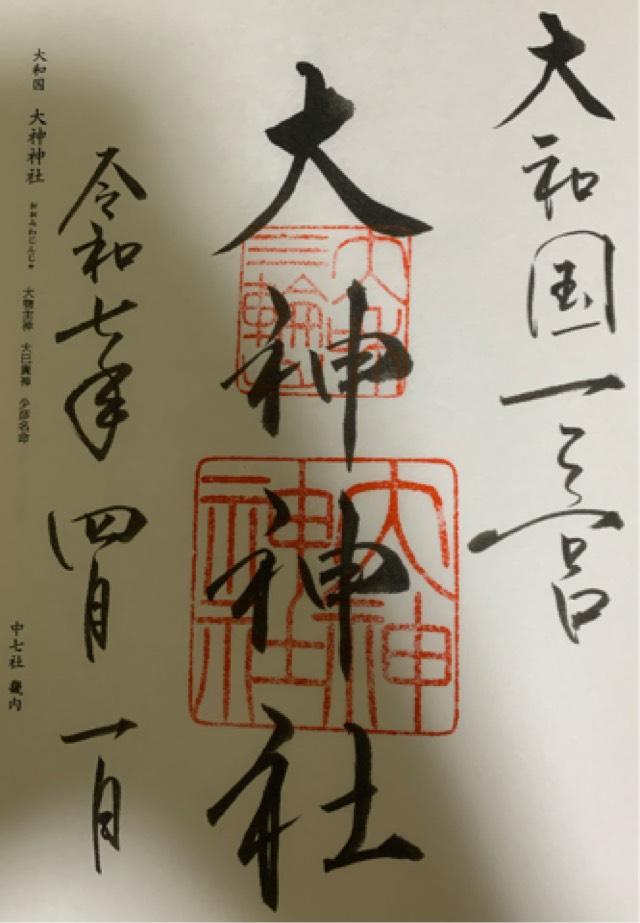 大和国一之宮
大神神社
三輪
大神神社
令和七年 四月 一日
大和国 大神神社 おおみわじんじゃ 大物主神 大己貴神 少彦名命
中七社 畿内